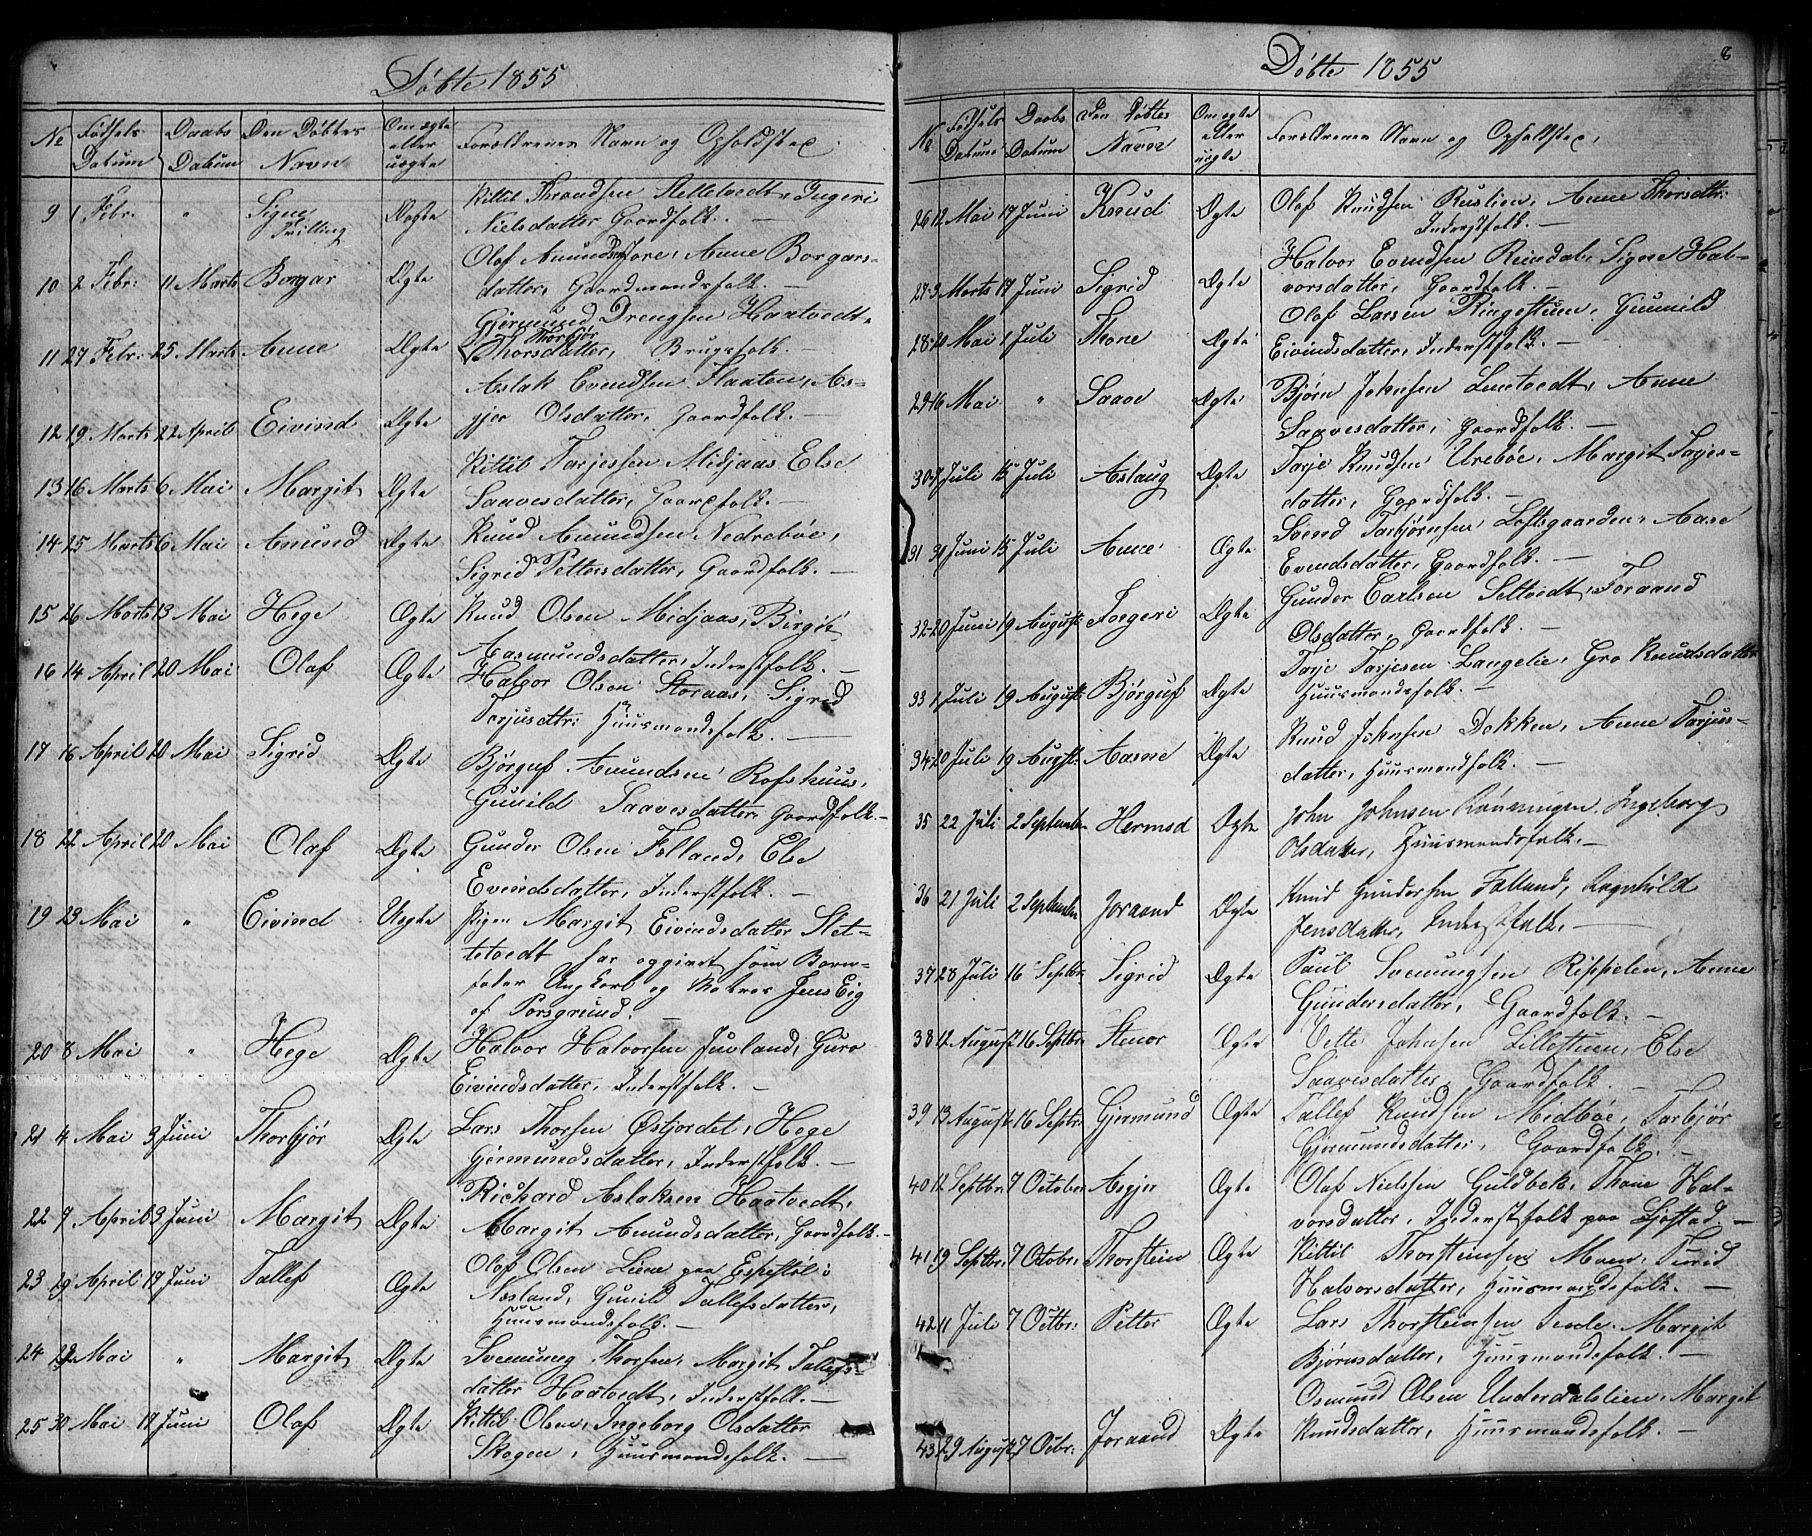 Døbte 1855
No
Fødsels Datum
Daabs Datum
Den Døbtes Navn
Om ægte eller uægte
Forældrenes Navn og Opholdsted
9 1 Febr. " Signe Trilling Ægte Kittil Throndsen Slettevedt, Ingeri
Nielsdatter Gaardfolk. —
10 2 Febr: 11 Marts Borgar Ægte Olaf Amundsen Jore, Anne Borgars-
datter, Gaardmandsfolk. —
11 27 Febr: 25 Marts Anne Ægte Gjermund Drengsen Haatvedt,
Thorbjør
Thorsdatter, Brugsfolk. —
12 19 Marts 22 April Eivind Ægte Aslak Evendsen Flaaten, As-
gjer Olsdatter, Gaardfolk. —
13 16 Marts 6 Mai Margit Ægte Kittil Tarjessen Midjaas Else
Saavesdatter, Gaardfolk. —
14 25 Marts 6 Mai Amund Ægte Knud Amundsen Nedrebøe,
Sigrid Pettersdatter, Gaardfolk. —
15 26 Marts 13 Mai Hege Ægte Knud Olsen Midjaas, Birgit
Aasmundsdatter, Inderstfolk. —
16 14 April 20 Mai Olaf Ægte Halvor Olsen Storaas, Sigrid
Tarjusdtr: Huusmandsfolk. —
17 16 April 20 Mai Sigrid Ægte Bjørguf Amundsen Rofshuus,
Gunild Saavesdatter Gaardfolk. —
18 22 April 20 Mai Olaf Ægte Gunder Olsen Felland, Else
Evindsdatter, Inderstfolk. —
19 23 Mai " Eivind Uægte Pigen Margit Eivindsdatter Slet-
tevedt har opgivet som Barne-
fader Ungkarl og Matros Jens Eig
af Porsgrund. —
20 8 Mai " Hege Ægte Halvor Halvorsen Juuland, Guro
Eivindsdatter, Inderstfolk. —
21 4 Mai 3 Juni Thorbjør Ægte Lars Thorsen Øifjordet, Hege
Gjermundsdatter, Inderstfolk. —
22 9 April 3 Juni Margit Ægte Richard Aslaksen Haatvedt,
Margit Amundsdatter, Gaardfolk. —
23 29 April 17 Juni Tallef Ægte Olaf Olsen Liene paa Espestøl i
Næsland, Gunild Tallefsdatter,
Huusmandsfolk. —
24 Mai " Margit Ægte Svenung Thorsen, Margit Tallefs-
datter Haatvedt, Inderstfolk. —
25 30 Mai 17 Juni Olaf Ægte Kittil Olsen, Ingeborg Olsdatter
Skogen, Huusmandsfolk. —
8
Døbte 1855
No
Fødsels Datum
Daabs Datum
Den Døbtes Navn
Om ægte eller uægte
Forældrenes Navn og Opholdsted,
26 12 Mai 17 Juni Knud Ægte Olaf Knudsen Ruslien, Anne Thorsdtr:
Inderstfolk. —
27 3 Marts 17 Juni Sigrid Ægte Halvor Evendsen Reindal, Signe Hal-
vorsdatter, Gaardfolk. —
28 20 Mai 1 Juli Thone Ægte Olaf Larsen Ringestuen, Gunnild
Eivindsdatter, Inderstfolk. —
29 16 Mai " Saave Ægte Bjørn Johnsen Lunetvedt, Anne
Saavesdatter, Gaardfolk. —
30 7 Juli 15 Juli Aslaug Ægte Tarje Knudsen Urebøe, Margit Tarjes-
datter, Gaardfolk. —
31 Juni 15 Juli Anne Ægte Svend Torbjørnsen Loftsgaarden, Aase
Evendsdatter, Gaardfolk. —
32 20 Juni 19 August Torgeri Ægte Gunder Carlsen Seltvedt, Toraand
Olsdatter, Gaardfolk. —
33 1 Juli 19 August Bjørguf Ægte Tarje Tarjesen Langelie, Gro Knudsdatter
Huusmandsfolk. —
34 20 Juli 19 Augst: Aasne Ægte Knud Johnsen Dokken, Anne Tarjus-
datter, Huusmandfolk. —
35 22 Juli 2 September Hermod Ægte John Johnsen Rønningen, Ingeborg
Olsdatter, Huusmandsfolk. —
36 21 Juli 2 September Joraand Ægte Knud Gundersen Felland, Ragnhild
Jensdatter, Inderstfolk. —
37 28 Juli 16 Septbr: Sigrid Ægte Paul Svenungsen Rippelen, Anne
Gundersdatter, Gaardfolk. —
38 12 August 16 Septbr: Stenor Ægte Vetle Johnsen Lillestuen, Else
Saavesdatter Gaardfolk. —
39 13 August 16 Septbr: Gjermund Ægte Tallef Knudsen Midbøe, Tarbjør
Gjermundsdatter, Gaardfolk. —
40 12 Septbr: 7 October Asgjer Ægte Olaf Nielsen Guldbek, Thone Hal-
vorsdatter, Inderstfolk paa Ljøstad —
41 19 Septbr: 7 Octobr: Thorstein Ægte Kittil Thorsteinsen Moen, Turid
Halvorsdatter, Huusmandsfolk. —
42 11 Juli 7 Octbr: Petter Ægte Lars Thorsteinsen Tinde, Margit
Bjørnsdatter, Huusmandsfolk. —
43 29 August 7 Octbr: Joraand Ægte Osmund Olsen Underdalslien, Margit
Knudsdatter, Huusmandsfolk. —